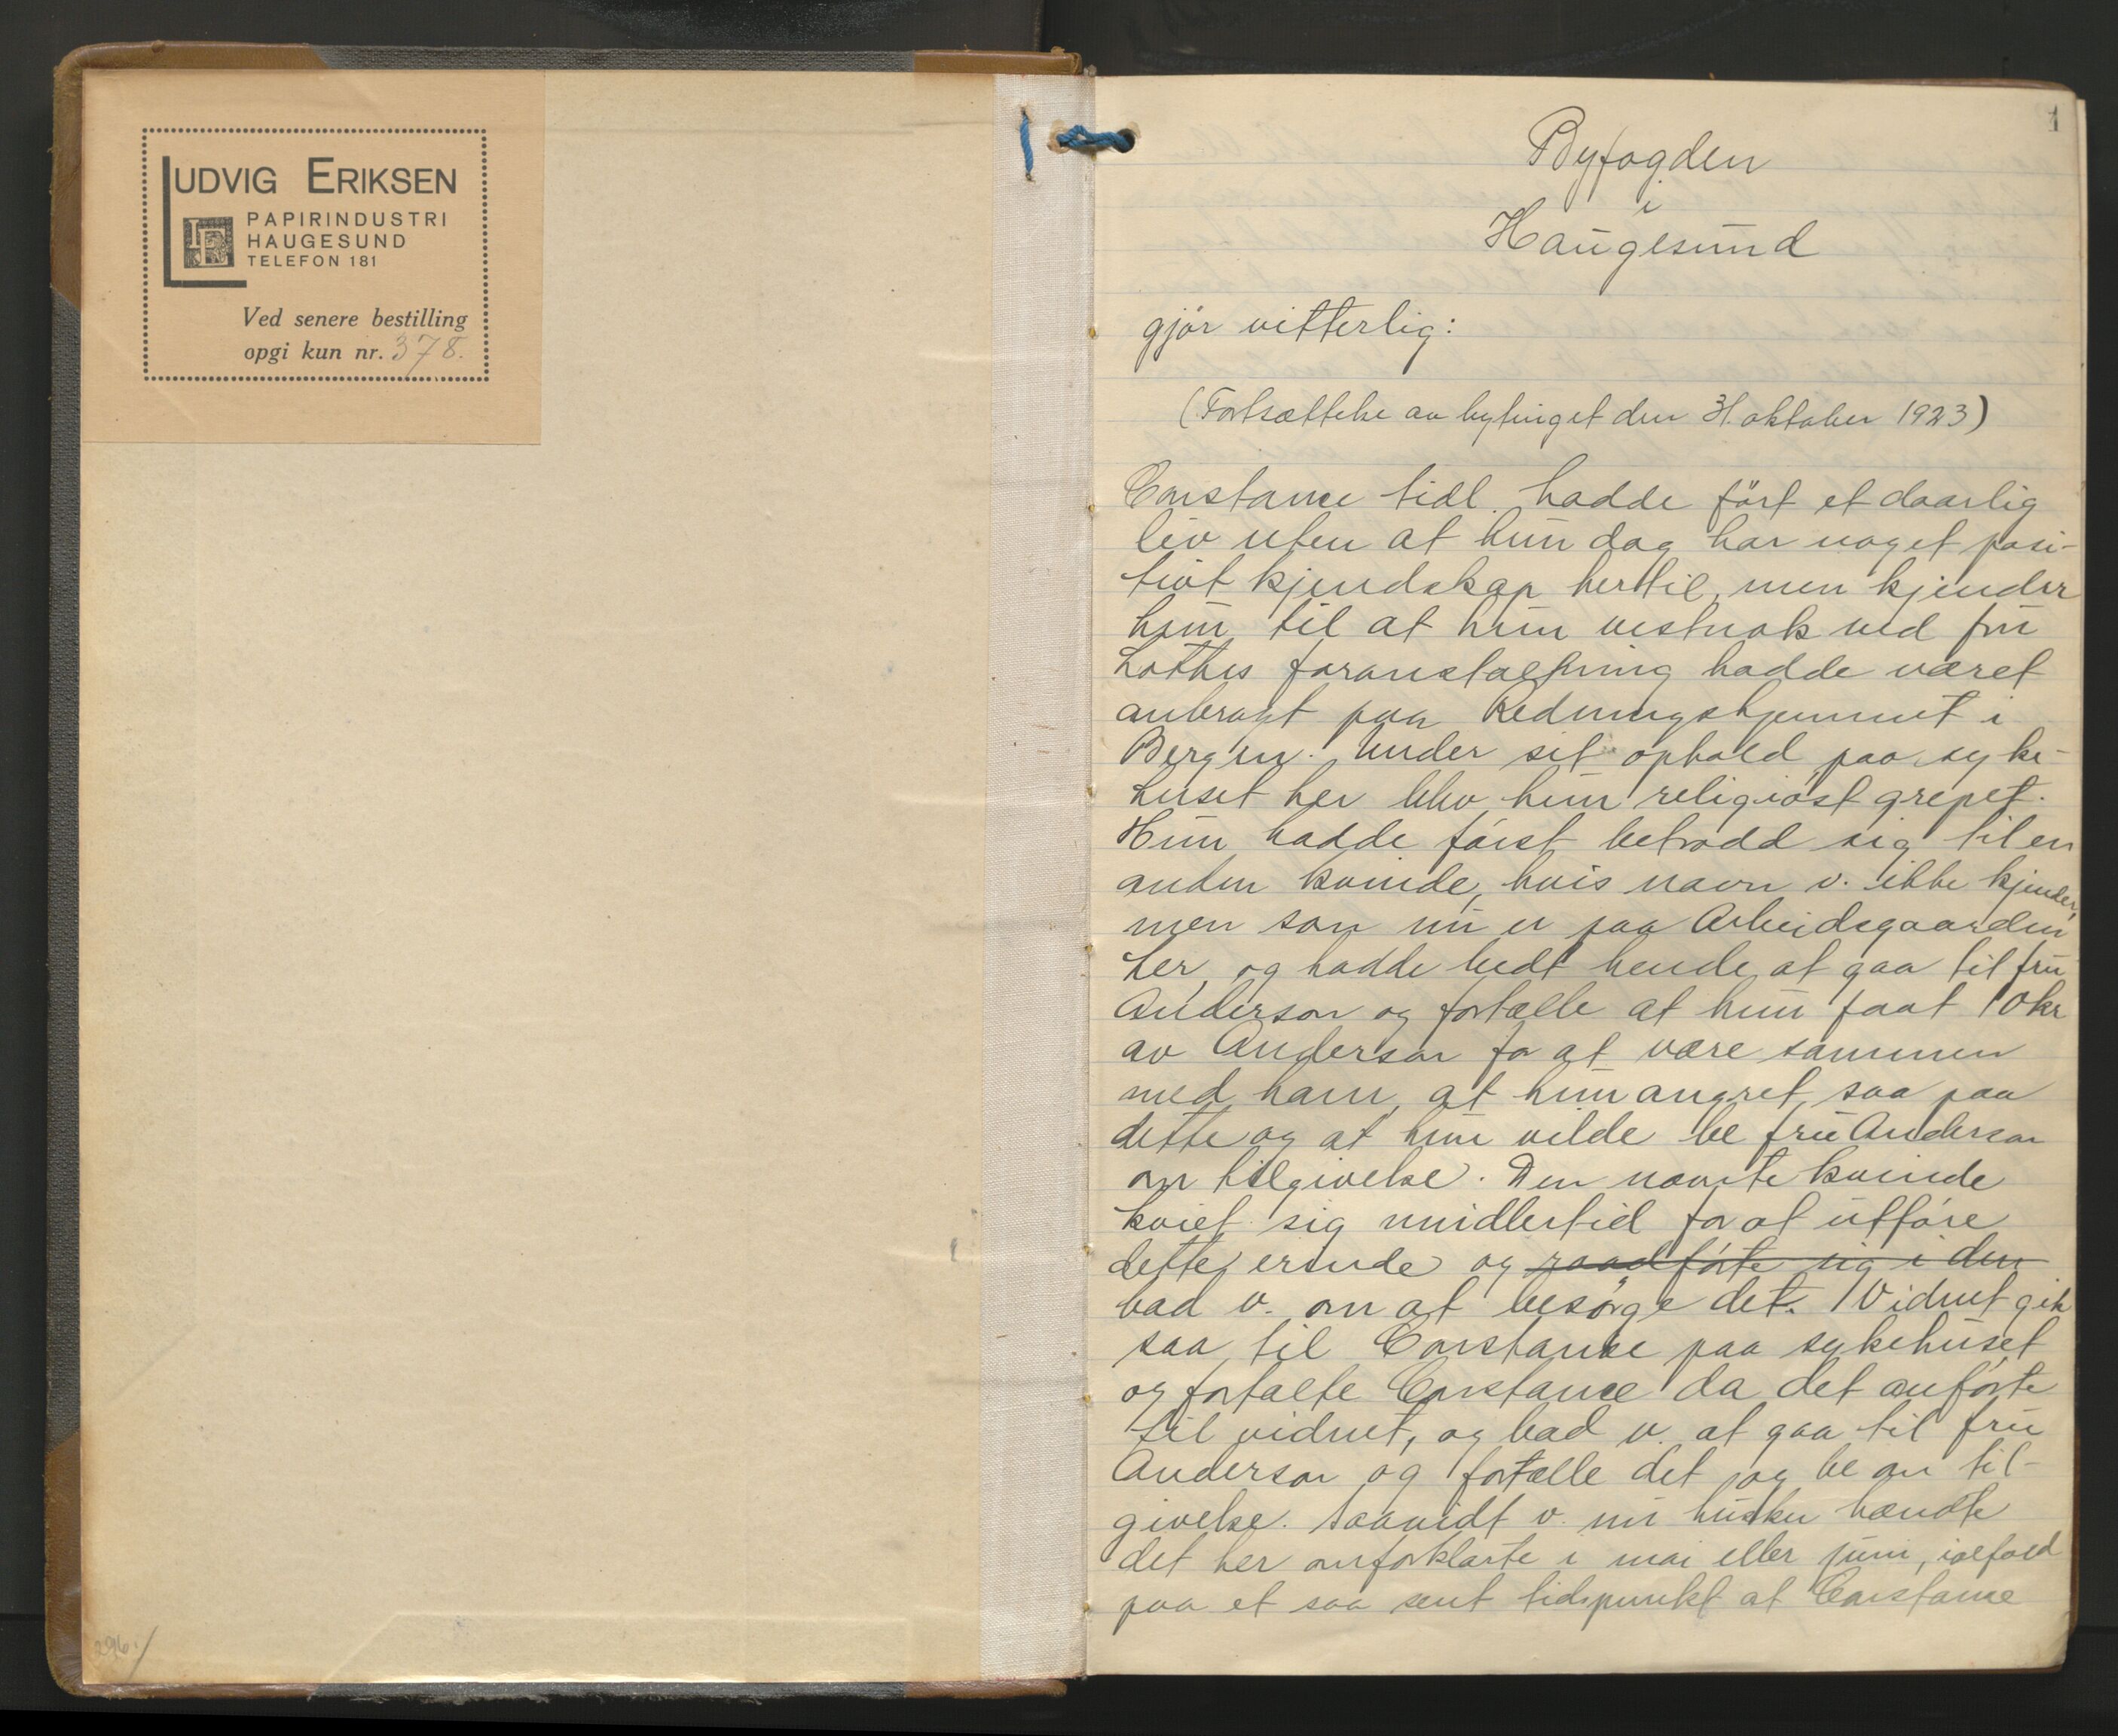 LUDVIG ERIKSEN
LE
PAPIRINDUSTRI
HAUGESUND
TELEFON 181
Ved senere bestilling
opgi kun nr. 378.
296./
1
Byfogden
i
Haugesund
gjör vitterlig:
(Fortsættelse av bytinget den 31. oktober 1923)
Constance tidl. hadde fört et daarlig
liv uten at hun dog har noget posi-
tivt kjendskap hertil, men kjender
hun til at hun vistnok ved fru
Lothes foranstaltning hadde været
anbragt paa Redningshjemmet i
Bergen. Under sit ophold paa syke-
huset her blev hun religiöst grepet.
Hun hadde först betrodd sig til en
anden kvinde, hvis navn v. ikke kjender,
men som nu er paa Arbeidsgaarden
her, og hadde bedt hende at gaa til fru
Anderson og fortælle at hun faat 10 kr
av Anderson for at være sammen
med ham, at hun angret saa paa
dette og at hun vilde be fru Anderson
om tilgivelse. Den nævnte kvinde
kviet sig imidlertid for at utföre
dette erinde og raadförte sig i den
bad v. om at besörge det. Vidnet gik
saa til Constance paa sykehuset
og fortalte Constance da det anförte
til vidnet, og bad v. at gaa til fru
Anderson og fortælle det og be om til-
givelse. Saavidt v. nu husker hændte
det her omforklarte i mai eller juni, ialfald
paa et saa sent tidspunkt at Constance